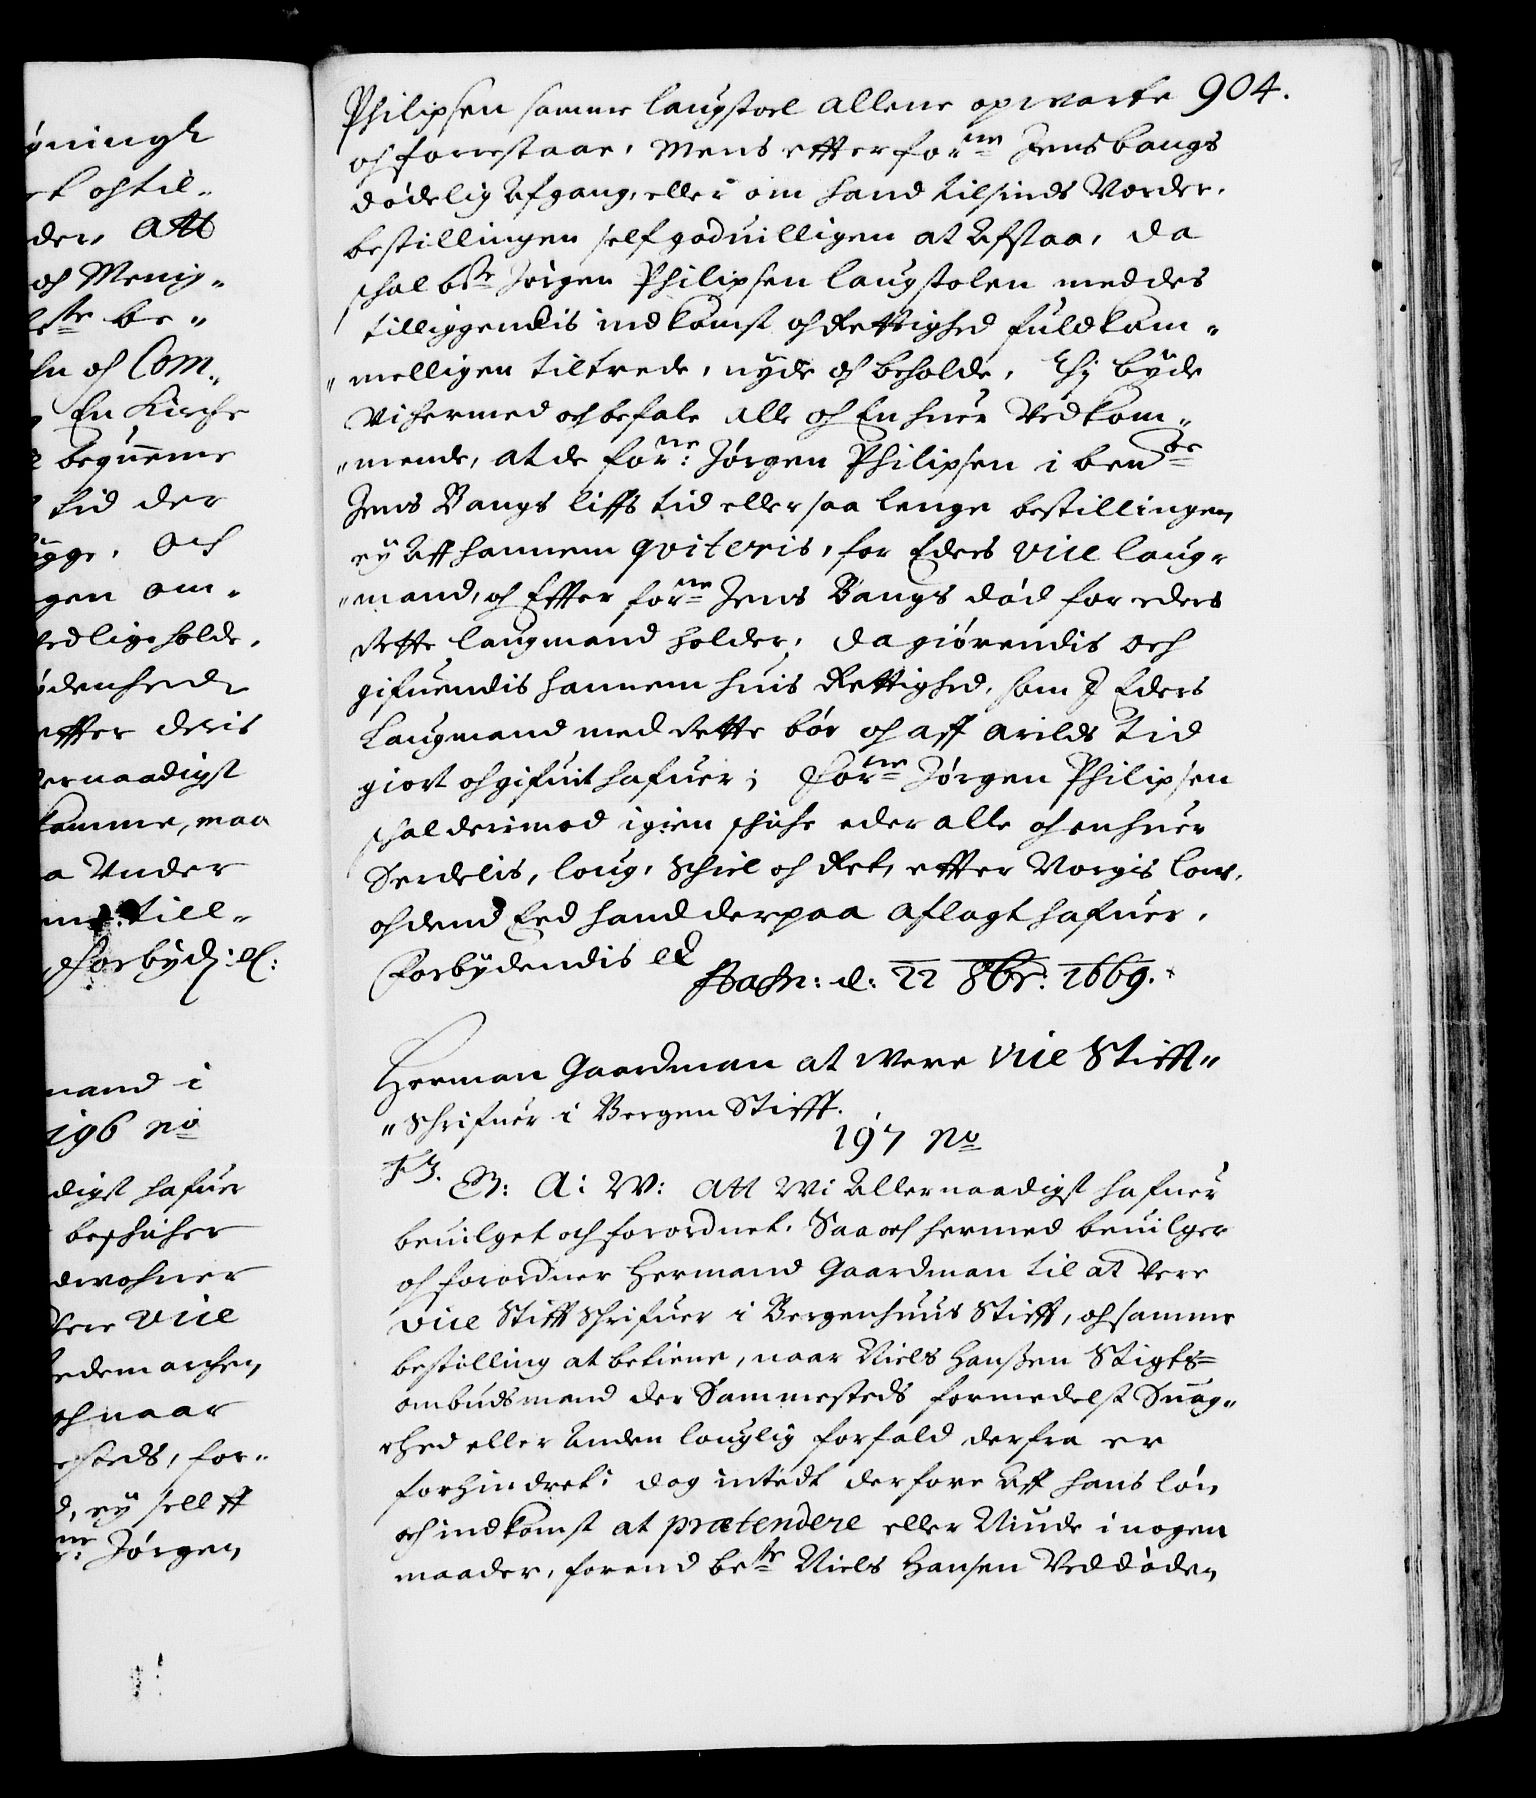 904.
Philipsen samme laugstoel allene opvarte
och forrestaar, Mens efter forne Jens bangs
dødelig Afgang, eller om hand tilsinds Vorder,
bestillingen self goduilligen at Afstaa, da
schal bte Jörgen Philipsen laugstolen med des
tilliggendis indkomst och Rettighed fuldkom„
„melligen tiltrede, nyde och beholde, Thj byde
Vi hermed och befale alle och Enhuer Vedkom„
„mende, at de forne: Jørgen Philipsen i bente
Jens Bangs liffs tid eller saa lenge bestillingen
ey Aff hannem qviteris, for Eders vice laug„
„mand, och Effter forne Jens Bangs død for eders
rette laugmand holder, da giørendis och
gifuendis hannem huis Rettighed, som I Eders
Laugmand med rette bør och aff arilds Tid
giort och gifuit hafuer; Forne Jørgen Philipsen
schal derimod igien schiche eder alle och enhuer
Serdelis, loug, Schiel och Ret, effter Norgis low,
och dend Eed hand derpaa aflagt hafuer.
Forbydendis etc
Hafn: d: 22 8br: 1669.
Herman Gaardman at were vice Stifft„
„Schrifuer i Bergen Stifft.
197 No
F3. G: A: W: Att Wi Allernaadigst hafuer
beuilget och forordnet, Saa och hermed beuilger
och forordner Hermand Gaardman til at Vere
vice Stifft Schrifuer i Bergenhuus Stifft, och samme
bestilling at betiene, naar Niels Hanßen Stigts=
ombudsmand der Sammesteds formedelst Suag„
„hed eller Anden louglig forfald derfra er
forhindret; dog intedt derfore Aff hans løn
och indkomst at prætendere eller Niude i nogen
maader, forend bete Niels Hansen Ved døden